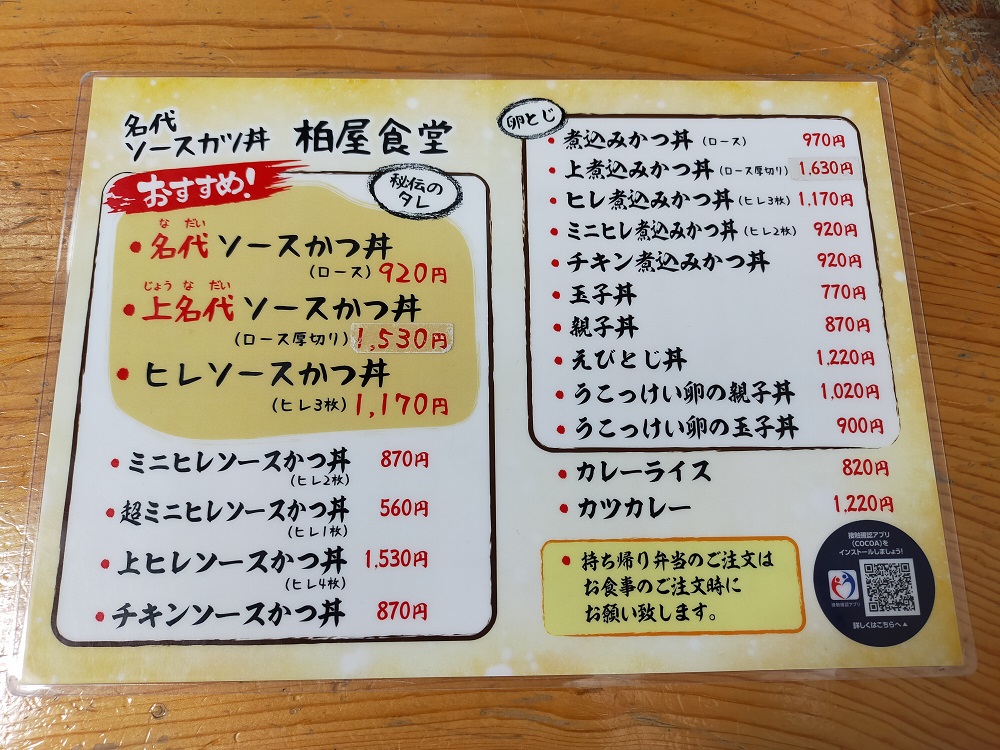 名代
ソースカツ丼 柏屋食堂
おすすめ!
秘伝の
タレ
な だい
・名代ソースかつ丼
(ロース) 920円
じょう な だい
・上名代ソースかつ丼
(ロース厚切り) 1,530円
・ヒレソースかつ丼
(ヒレ3枚) 1,170円
・ミニヒレソースかつ丼 870円
(ヒレ2枚)
・超ミニヒレソースかつ丼 560円
(ヒレ1枚)
・上ヒレソースかつ丼 1,530円
(ヒレ4枚)
・チキンソースかつ丼 870円
卵とじ
・煮込みかつ丼 (ロース) 970円
・上煮込みかつ丼 (ロース厚切り) 1,630円
・ヒレ煮込みかつ丼 (ヒレ3枚) 1,170円
・ミニヒレ煮込みかつ丼 (ヒレ2枚) 920円
・チキン煮込みかつ丼 920円
・玉子丼 770円
・親子丼 870円
・えびとじ丼 1,220円
・うこっけい卵の親子丼 1,020円
・うこっけい卵の玉子丼 900円
・カレーライス 820円
・カツカレー 1,220円
・持ち帰り弁当のご注文は
お食事のご注文時に
お願い致します。
接触確認アプリ
(COCOA)を
インストールしましょう!
接触確認アプリ
詳しくはこちらへ▲